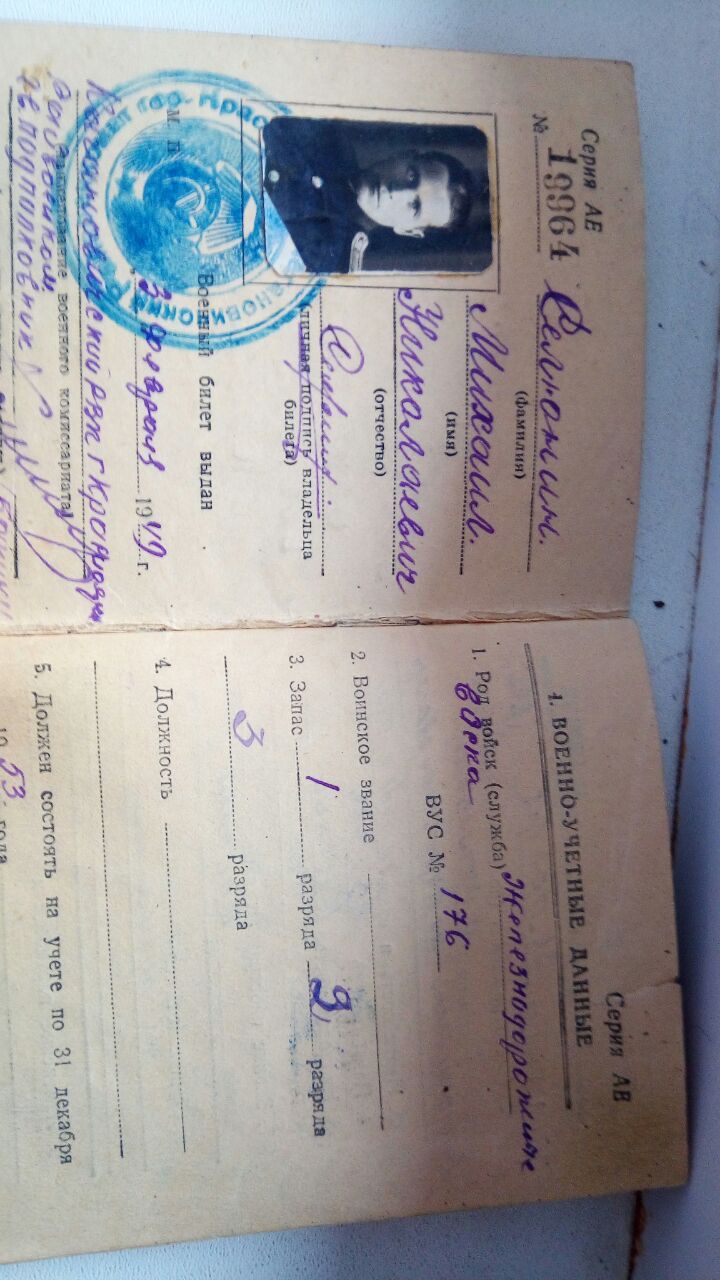 Серия АЕ
№ 19964
(фамилия)
Михаил.
(имя)
Николаевич
(отчество)
Личная подпись владельца
билета)
М. П.
Военный билет выдан
3 февраля 1949 г.
Кагановичский РВК г Краснодар
наименование военного комиссариата
подполковник
Серия АЕ
1. ВОЕННО-УЧЕТНЫЕ ДАННЫЕ
1. Род войск (служба) Железнодорожные
войска
ВУС № 176
2. Воинское звание
3. Запас 1 разряда 2 разряда
3 разряда
4. Должность
5. Должен состоять на учете по 31 декабря
1953 года